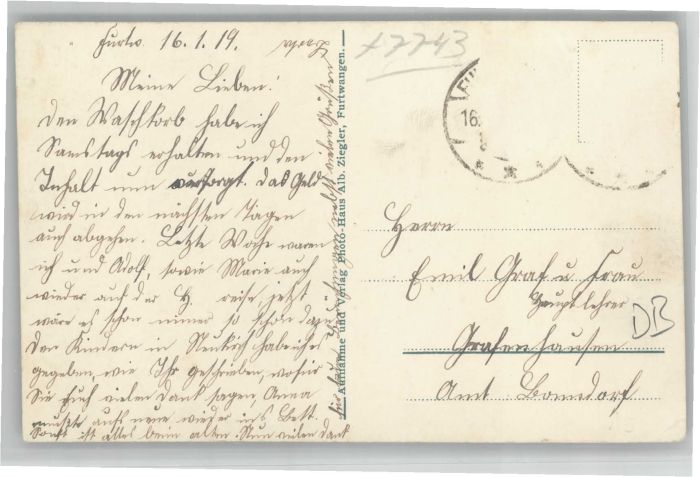 Furtw. 16.1.19.
Meine Lieben!
Den Waschkorb habe ich
Samstags erhalten und den
Inhalt nun versorgt. Das Geld
wird in den nächsten Tagen
auch abgehen. Letzte Woche waren
ich und Adolf, sowie Marie auch
wieder auf der H. reise, jetzt
wäre es schon immer so schön dazu
Den Kindern in Neukirch habe ich es
gegeben, wie Ihr geschrieben, wofür
Sie Euch vielen Dank sagen, Anna
mußte aufs neue wieder ins Bett.
Sonst ist alles beim alten. Nun vielen Dank
für nebst vielen Grüßen
Aufnahme und Verlag Photo-Haus Alb. Ziegler, Furtwangen.
+7743
16.
Herrn
Emil Graf u Frau
Hauptlehrer
DB
Grafenhausen
Amt Bonndorf